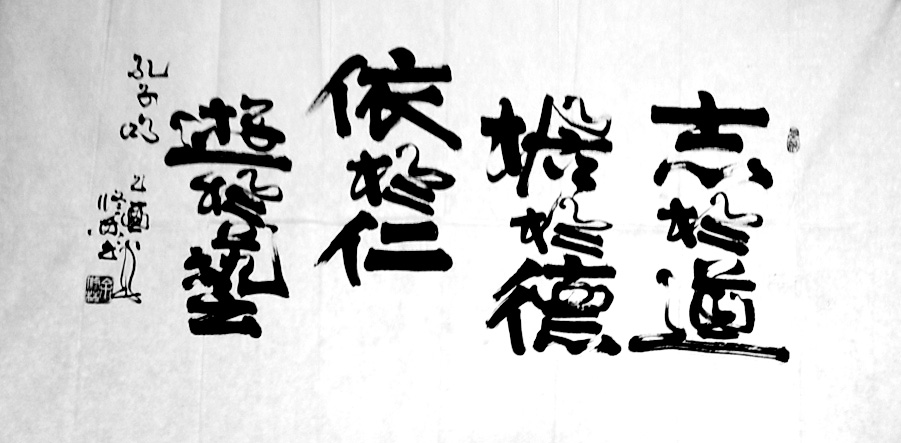 志於道
據於德
依於仁
遊於藝
孔子句
乙酉